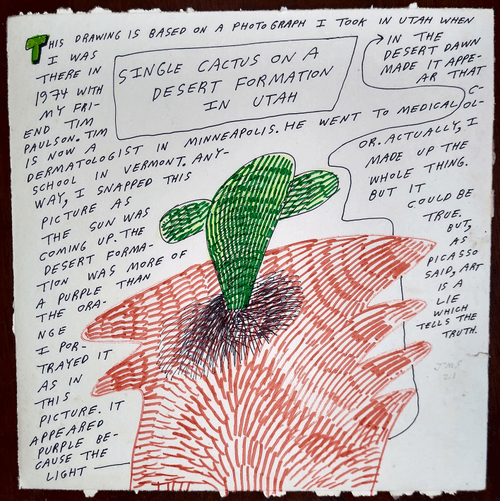 THIS DRAWING IS BASED ON A PHOTOGRAPH I TOOK IN UTAH WHEN
I WAS
THERE IN
1974 WITH
MY FRI-
END TIM
PAULSON. TIM
IS NOW A
DERMATOLOGIST IN MINNEAPOLIS. HE WENT TO MEDICAL
SCHOOL IN VERMONT. ANY-
WAY, I SNAPPED THIS
PICTURE AS
THE SUN WAS
COMING UP. THE
DESERT FORMA-
TION WAS MORE OF
A PURPLE THAN
THE ORA-
NGE
I POR-
TRAYED IT
AS IN
THIS
PICTURE. IT
APPEARED
PURPLE BE-
CAUSE THE
LIGHT
SINGLE CACTUS ON A
DESERT FORMATION
IN UTAH
IN THE
DESERT DAWN
MADE IT APPE-
AR THAT
C-
OL-
OR. ACTUALLY, I
MADE UP THE
WHOLE THING.
BUT IT
COULD BE
TRUE.
BUT,
AS
PICASSO
SAID, ART
IS A
LIE
WHICH
TELLS THE
TRUTH.